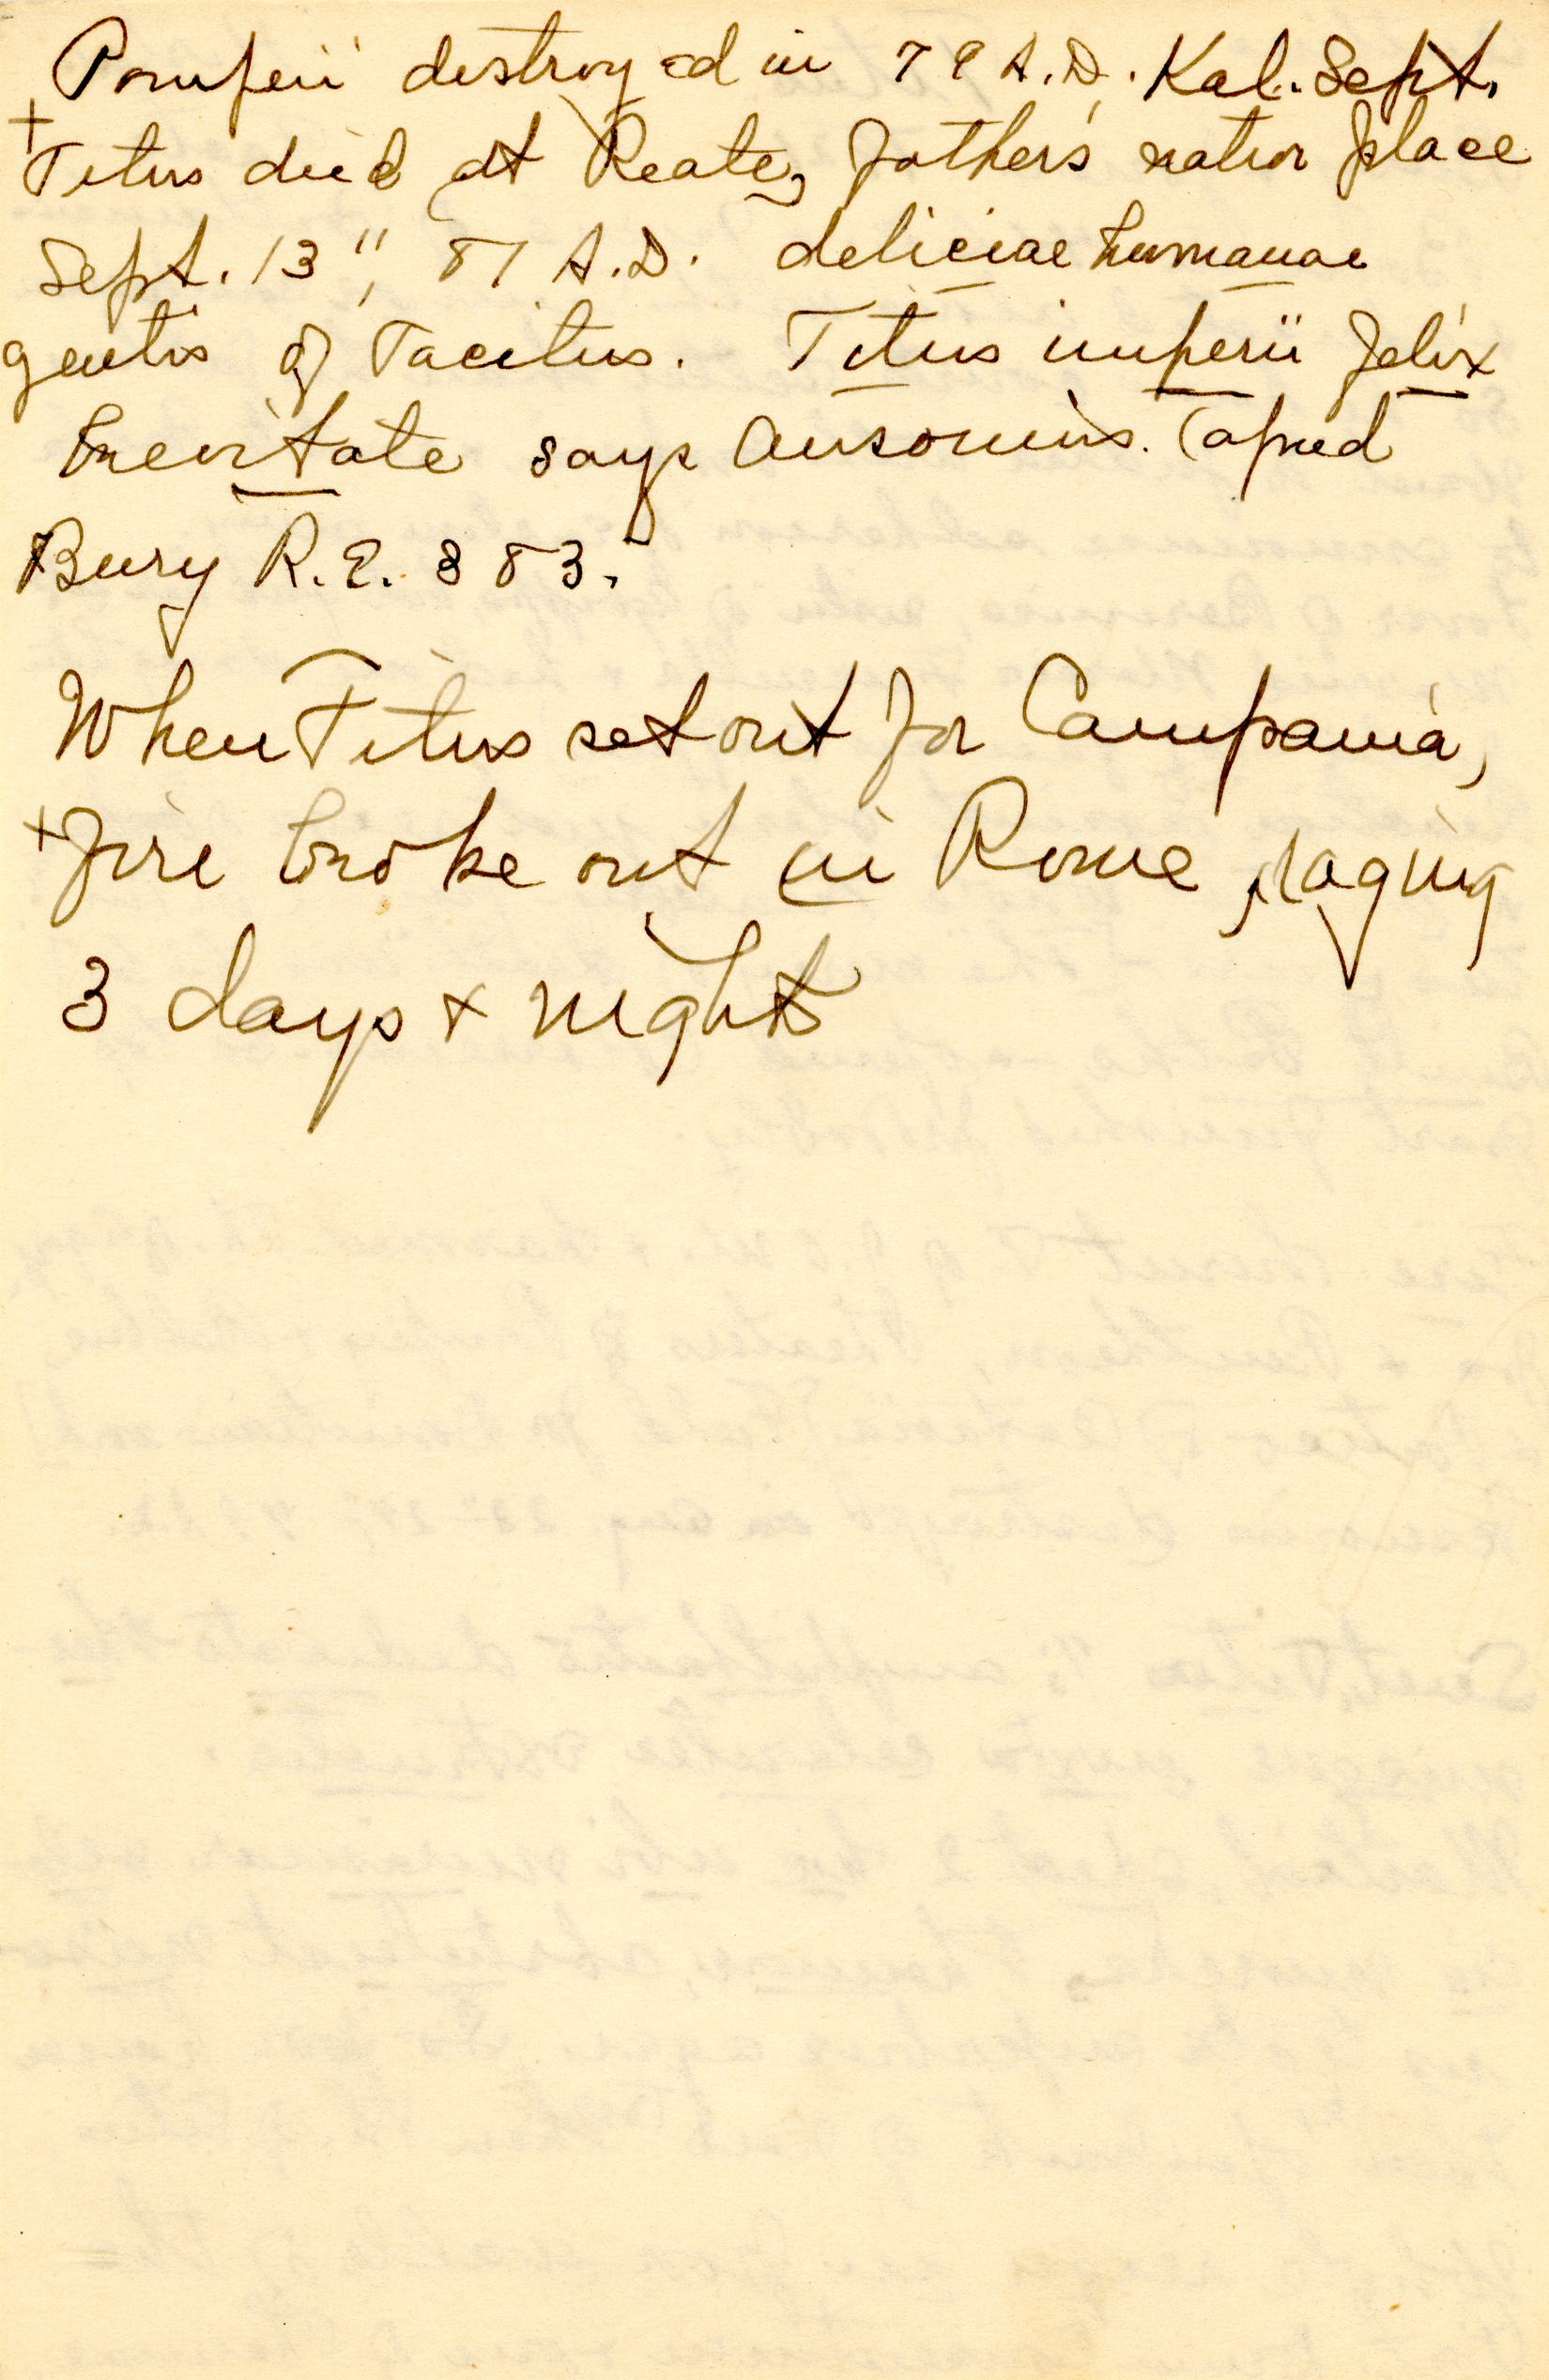 Pompeii destroyed in 79 A.D. Kal. Sept.
+ Titus died at Reate, father's native place
Sept. 13", 81 A.D. deliciae humanae
gentis of Tacitus. Titus imperii felix
brevitate says Ausonius. (apud
Bury R.E. 383.
When Titus set out for Campania,
+ fire broke out in Rome, raging
3 days + nights